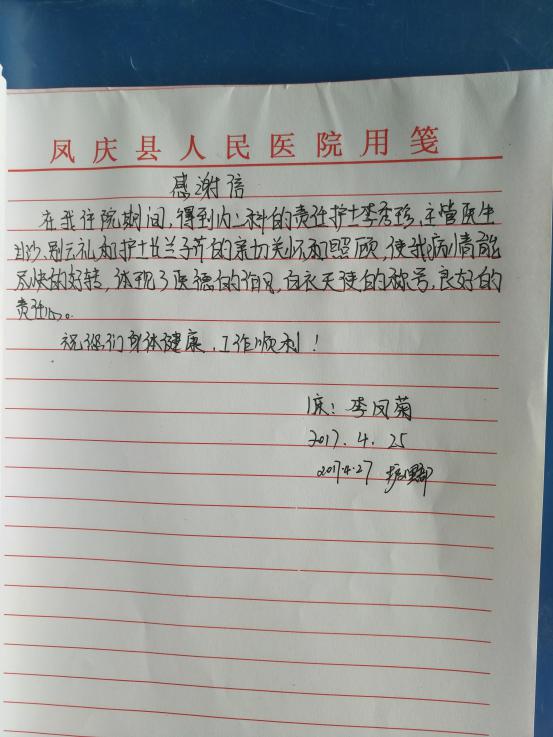 凤庆县人民医院用笺
感谢信
在我住院期间,得到内二科的责任护士李秀珍,主管医生
礼和护士长兰子芹的亲切关怀和照顾,使我病情能
尽快的好转,体现了医德的作风,白衣天使的称号,良好的
责任心。
祝您们身体健康,工作顺利!
1床:李凤菊
2017.4.25
2017.4.27 护理部